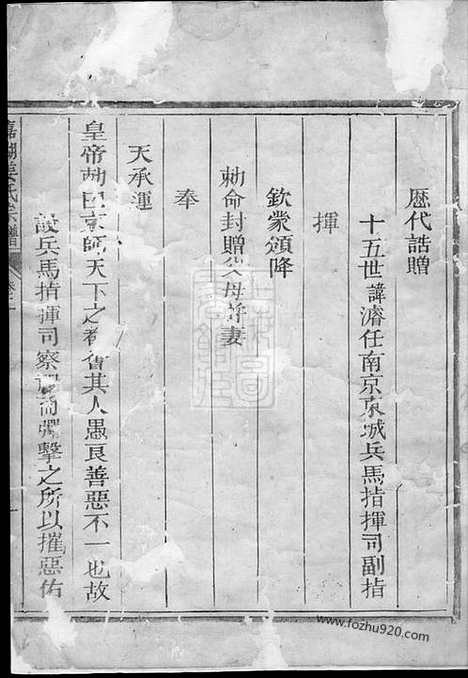 歷代誥贈
十五世諱濬任南京東城兵馬指揮司副指
揮
欽蒙頒降
勅命封贈父母并妻
奉
天承運
皇帝勅曰京師天下之都會其人愚良善惡不一也故
設兵馬指揮司察姦而彈擊之所以摧惡佑
姜氏宗譜
www.fozhu920.com